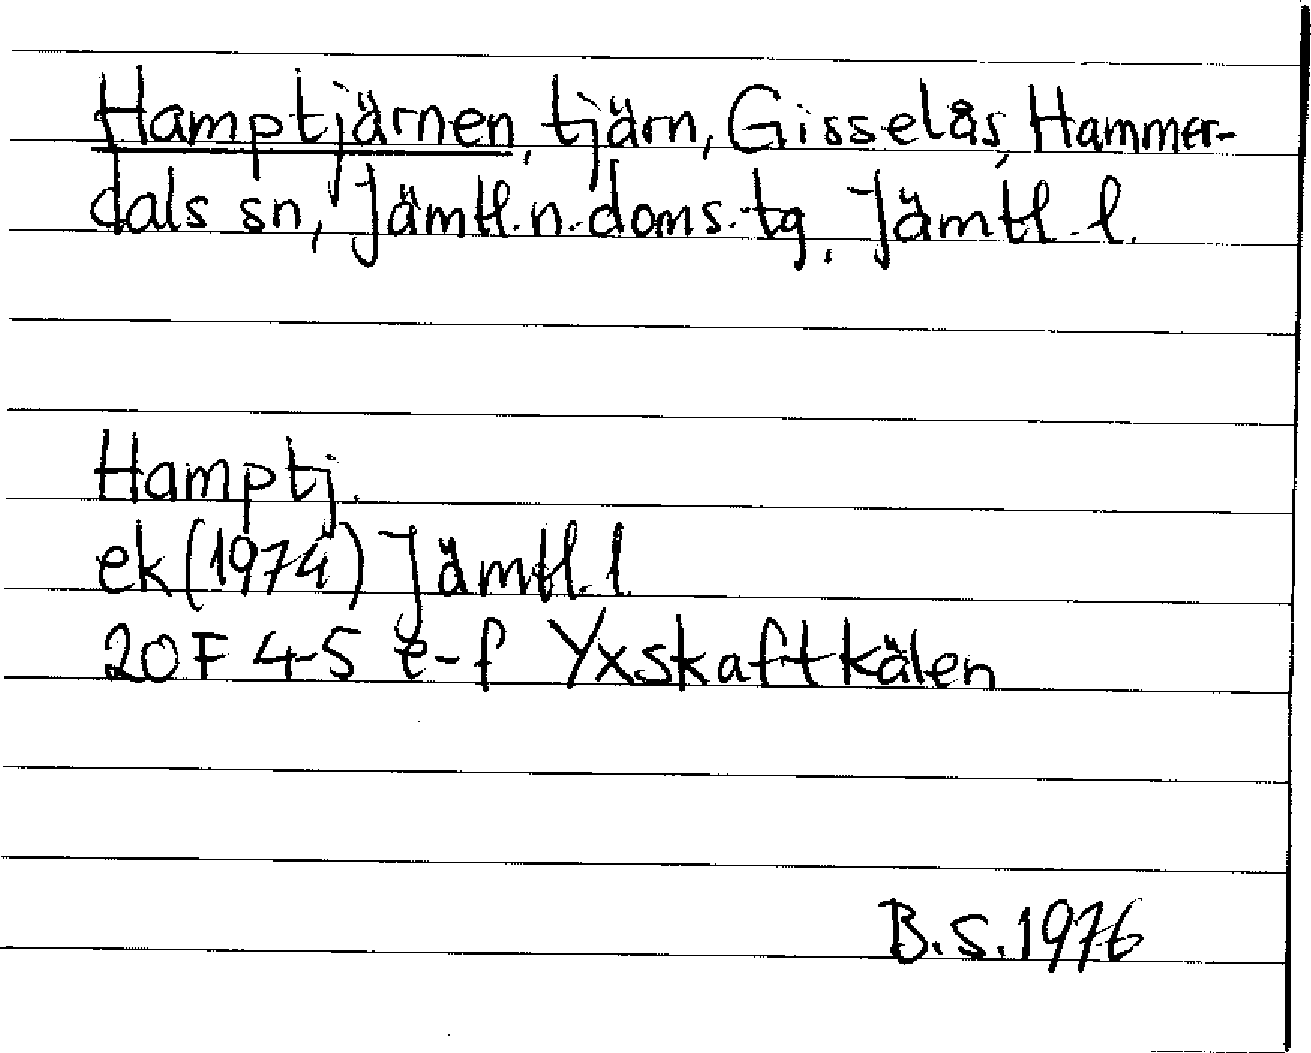 Hamptjärnen, tjärn, Gisselås, Hammer-
dals sn, Jämtl. n. doms. tg, Jämtl. l.
Hamptj.
ek (1974) Jämtl. l
20 F 4-5 e-f Yxskaftkälen
B.S. 1976